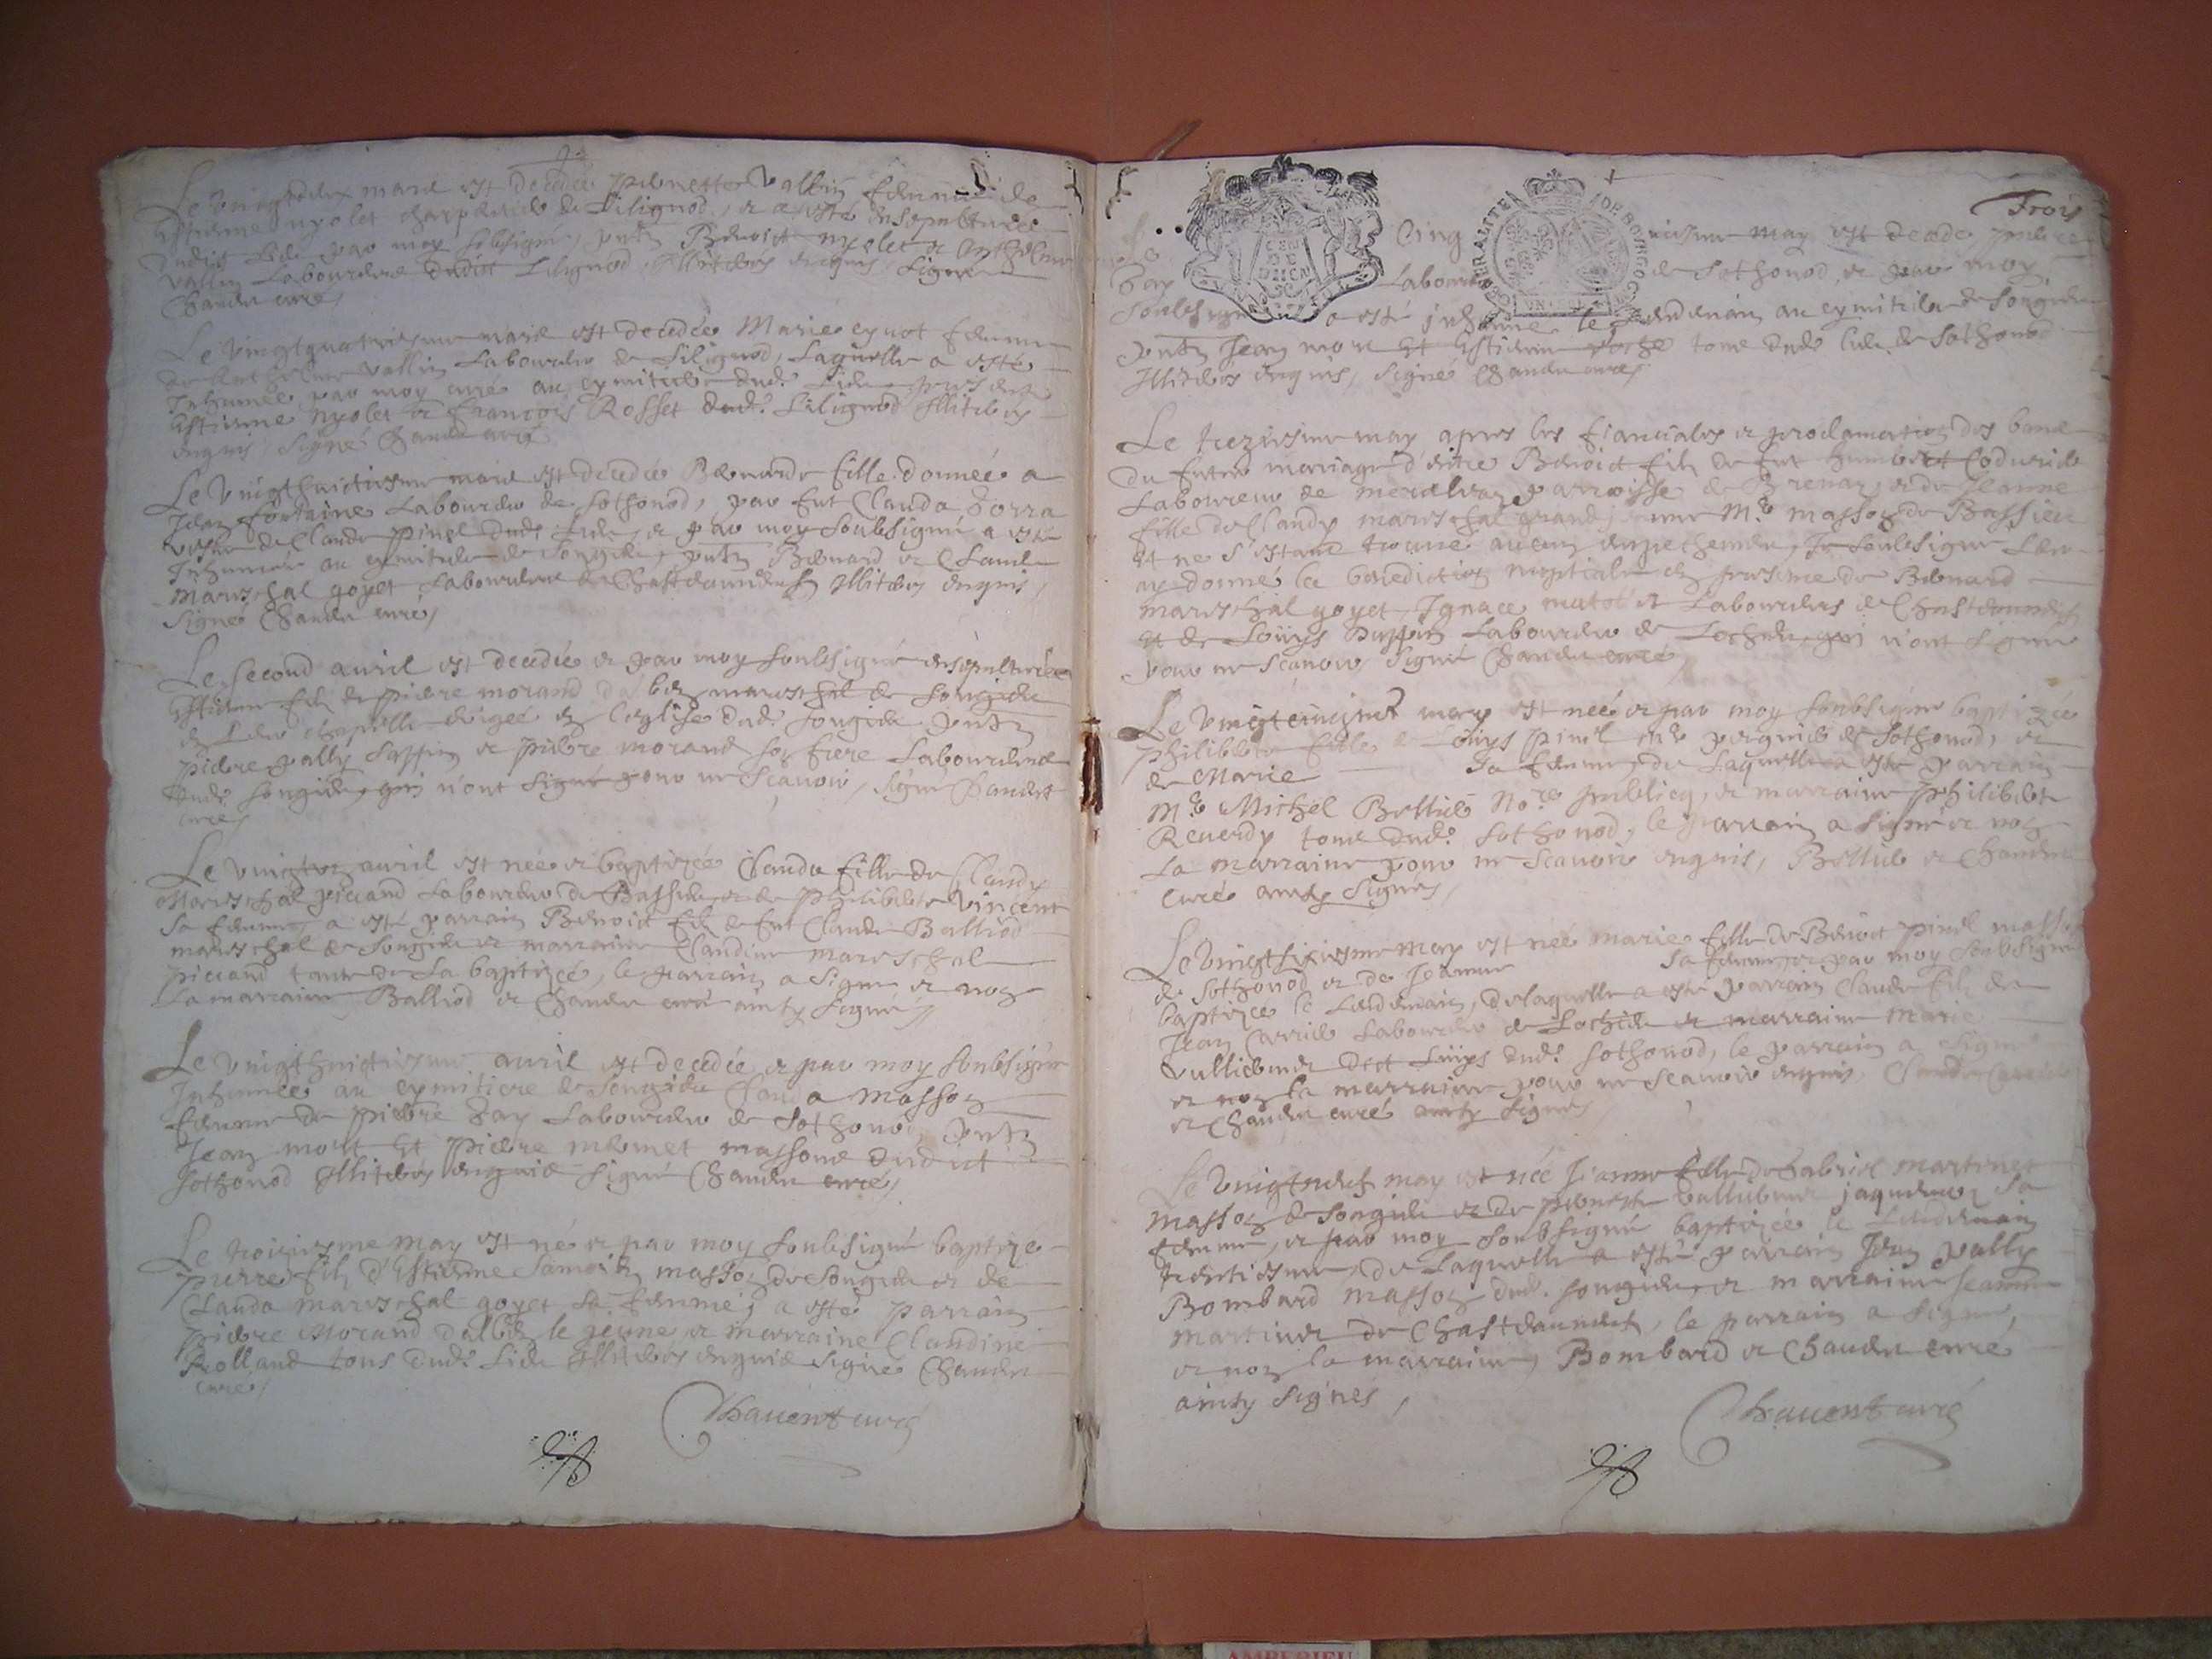 Le vingtdeux mars est decedée pernette Vallin femme de
Estienne nyolet charpentier de Lilignod, et a esté ensepulturée
dudict lieu par moy soubsigné, pntz Benoict nyolet et Anthelme
Vallin Laboureurs dudict Lilignod, Illiteres enquis, signé
Chavent curé,
Le vingtquatriesme mars est decedée Marie cyvot femme
de Anthelme Vallin Laboureur de Lilignod, Laquelle a esté
Inhumée par moy curé au cymitiere dudt lieu presents
Estienne nyolet et françois Rosset dudt Lilignod Illiteres
enquis, signé Chavent curé
Le vingthuictiesme mars est decedée Bernarde fille donnée a
Jean fontaine Laboureur de Sothonod, par fut Clauda
de Claude pinel dudt lieu, et par moy soubsigné a esté
Inhumée au cymitiere de Songieu, pntz Bernard et Claude
mareschal goyet Laboureurs de Chasteauneuf, Illiteres enquis,
signé Chavent curé,
Le second avril est decedé et par moy soubsigné ensepulturé
Estienne filz de pierre morand dalbez mareschal de Songieu
en leur chapelle erigée en leglise dudt Songieu pntz
pierre pally sappin et pierre morand son frere Laboureurs
dudt Songieu, qui n'ont signé pour ne scavoir, signé Chavent
curé,
Le vingtz avril est née et baptizée Clauda fille de Claudy
Mareschal piccand Laboureur de Bassieu et de philiberte Vincent
sa femme, a esté parrain Benoict filz de fut Claude Balliod
mareschal de Songieu et marraine Claudine mareschal
piccand tante de La baptizée, le parrain a signé et non
La marraine, Balliod et Chavent curé ainsy signés
Le vingthuictiesme avril est decedée et par moy soubsigné
Inhumée au cymitiere de Songieu Clauda Masson
femme de pierre Gay Laboureur de Sothonod, pntz
Jean mort Et pierre mermet massons dudict
Sothonod Illiteres enquis signé Chavent curé,
Le troisiesme may est né et par moy soubsigné baptizé
pierre filz d'Estienne masson de Songieu et de
Clauda mareschal goyet sa femme, a esté parrain
pierre Morand dalbez le jeune et marraine Claudine
Rolland tous dudt lieu Illiteres enquis signé Chavent
curé,
Chavent curé
Trois
Le Cinquiesme may est decedé pierre
Gay Laboureur de Sothonod, et par moy
soubsigné a esté inhumé le lendemain au cymitiere de Songieu
pntz Jean mort Et Estienne tous dudt lieu de Sothonod
Illiteres enquis, signé Chavent curé,
Le treziesme may apres les fiancialles et proclamation des bans
du futur mariage d'entre Benoict filz de fut humbert Codurier
Laboureur de parroisse de Brenaz, et de Jeanne
fille de Claudy mareschal grand Me masson de Bassieu
et ne s'estant trouvé aucun empechement, Je soubsigné Leur
ay donné la benediction nuptiale en presence de Bernard
mareschal goyet, Ignace Laboureurs de Chasteauneuf
et de Louys Laboureur de Lochieu, qui n'ont signé
pour ne scavoir signé Chavent curé,
Le vingtcinq may est née et par moy soubsigné baptizée
philiberte fille de Louys pinel de Sothonod, et
de Marie sa femme, de Laquelle a esté parrain
Me Michel Bellier Nore publicq, et marraine philiberte
Reverdy tous dudt Sothonod, le parrain a signé et non
La marraine pour ne scavoir enquis, Bellier et Chavent
curé ainsy signés,
Le vingtsixiesme may est née marie fille de Benoict pinel masson
de Sothonod et de Jeanne sa femme, et par moy soubsigné
baptizée le lendemain, de laquelle a esté parrain Claude filz de
Jean Carrier Laboureur de Lochieu et marraine Marie
dict Luys dudt Sothonod, le parrain a signé
et non la marraine pour ne scavoir enquis, Claude Carrier
et Chavent curé ainsy signés
Le vingtneuf may est née Jeanne fille de Gabriel martinet
masson de Songieu et de pernette sa
femme, et par moy soubsigné baptizée le lendemain
trentiesme, de Laquelle a esté parrain Jean pally
Bombard masson dudt Songieu, et marraine Jeanne
martinet de Chasteauneuf, le parrain a signé,
et non la marraine, Bombard et Chavent curé
ainsy signés,
Chavent curé